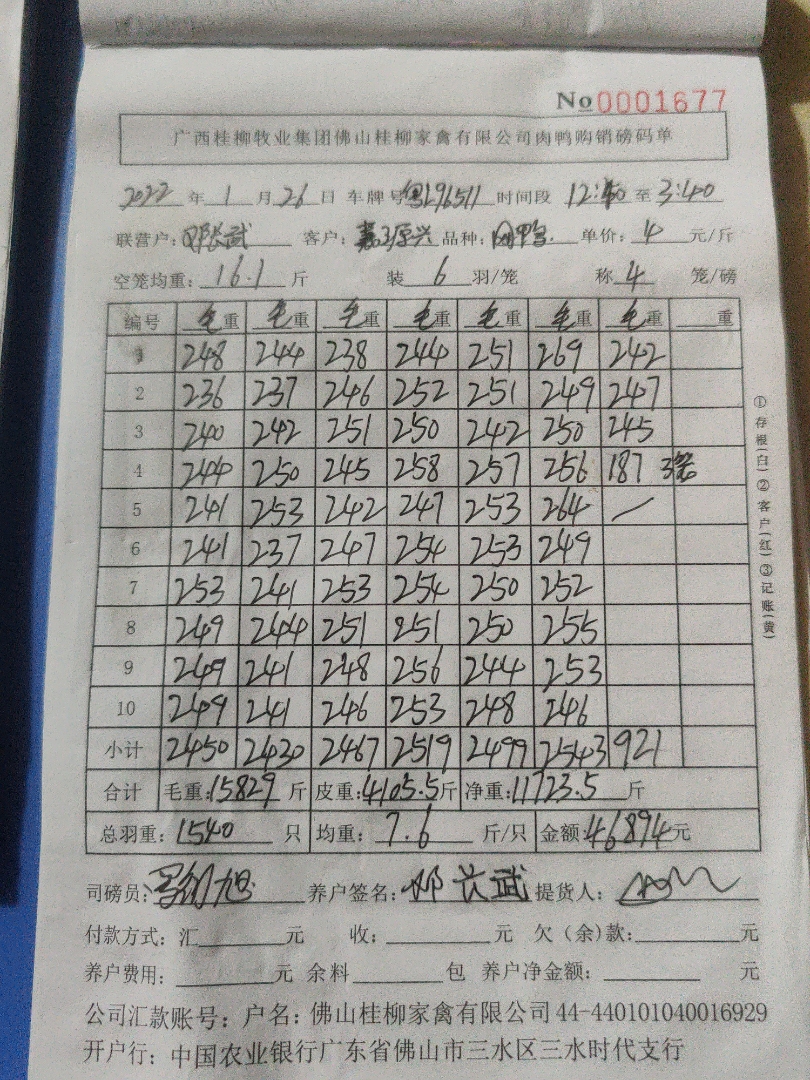 No 0001677
广西桂柳牧业集团佛山桂柳家禽有限公司肉鸭购销磅码单
2022 年 1 月 26 日 车牌号 粤L96511 时间段 12:40 至 3:40
联营户: 邓长武 客户: 原兴 品种: 肉鸭 单价: 4 元/斤
空笼均重: 16.1 斤 装 6 羽/笼 称 4 笼/磅
编号 毛重 毛重 毛重 毛重 毛重 毛重 毛重 重
1 248 244 238 244 251 269 242
2 236 237 246 252 251 249 247
3 240 242 251 250 242 250 245
4 244 250 245 258 257 256 187 3笼
5 241 253 242 247 253 264 /
6 241 237 247 254 253 249
7 253 241 253 254 250 252
8 249 244 251 251 250 255
9 249 241 248 256 244 253
10 249 241 246 253 248 246
小计 2450 2430 2467 2519 2499 2543 921
合计 毛重: 15829 斤 皮重: 4105.5 斤 净重: 11723.5 斤
总羽重: 1540 只 均重: 7.6 斤/只 金额: 46894 元
司磅员: 养户签名: 邓长武 提货人:
付款方式: 汇 元 收: 元 欠(余)款: 元
养户费用: 元 余料 包 养户净金额: 元
公司汇款账号: 户名: 佛山桂柳家禽有限公司 44-440101040016929
开户行: 中国农业银行广东省佛山市三水区三水时代支行
①存根(白)②客户(红)③记账(黄)